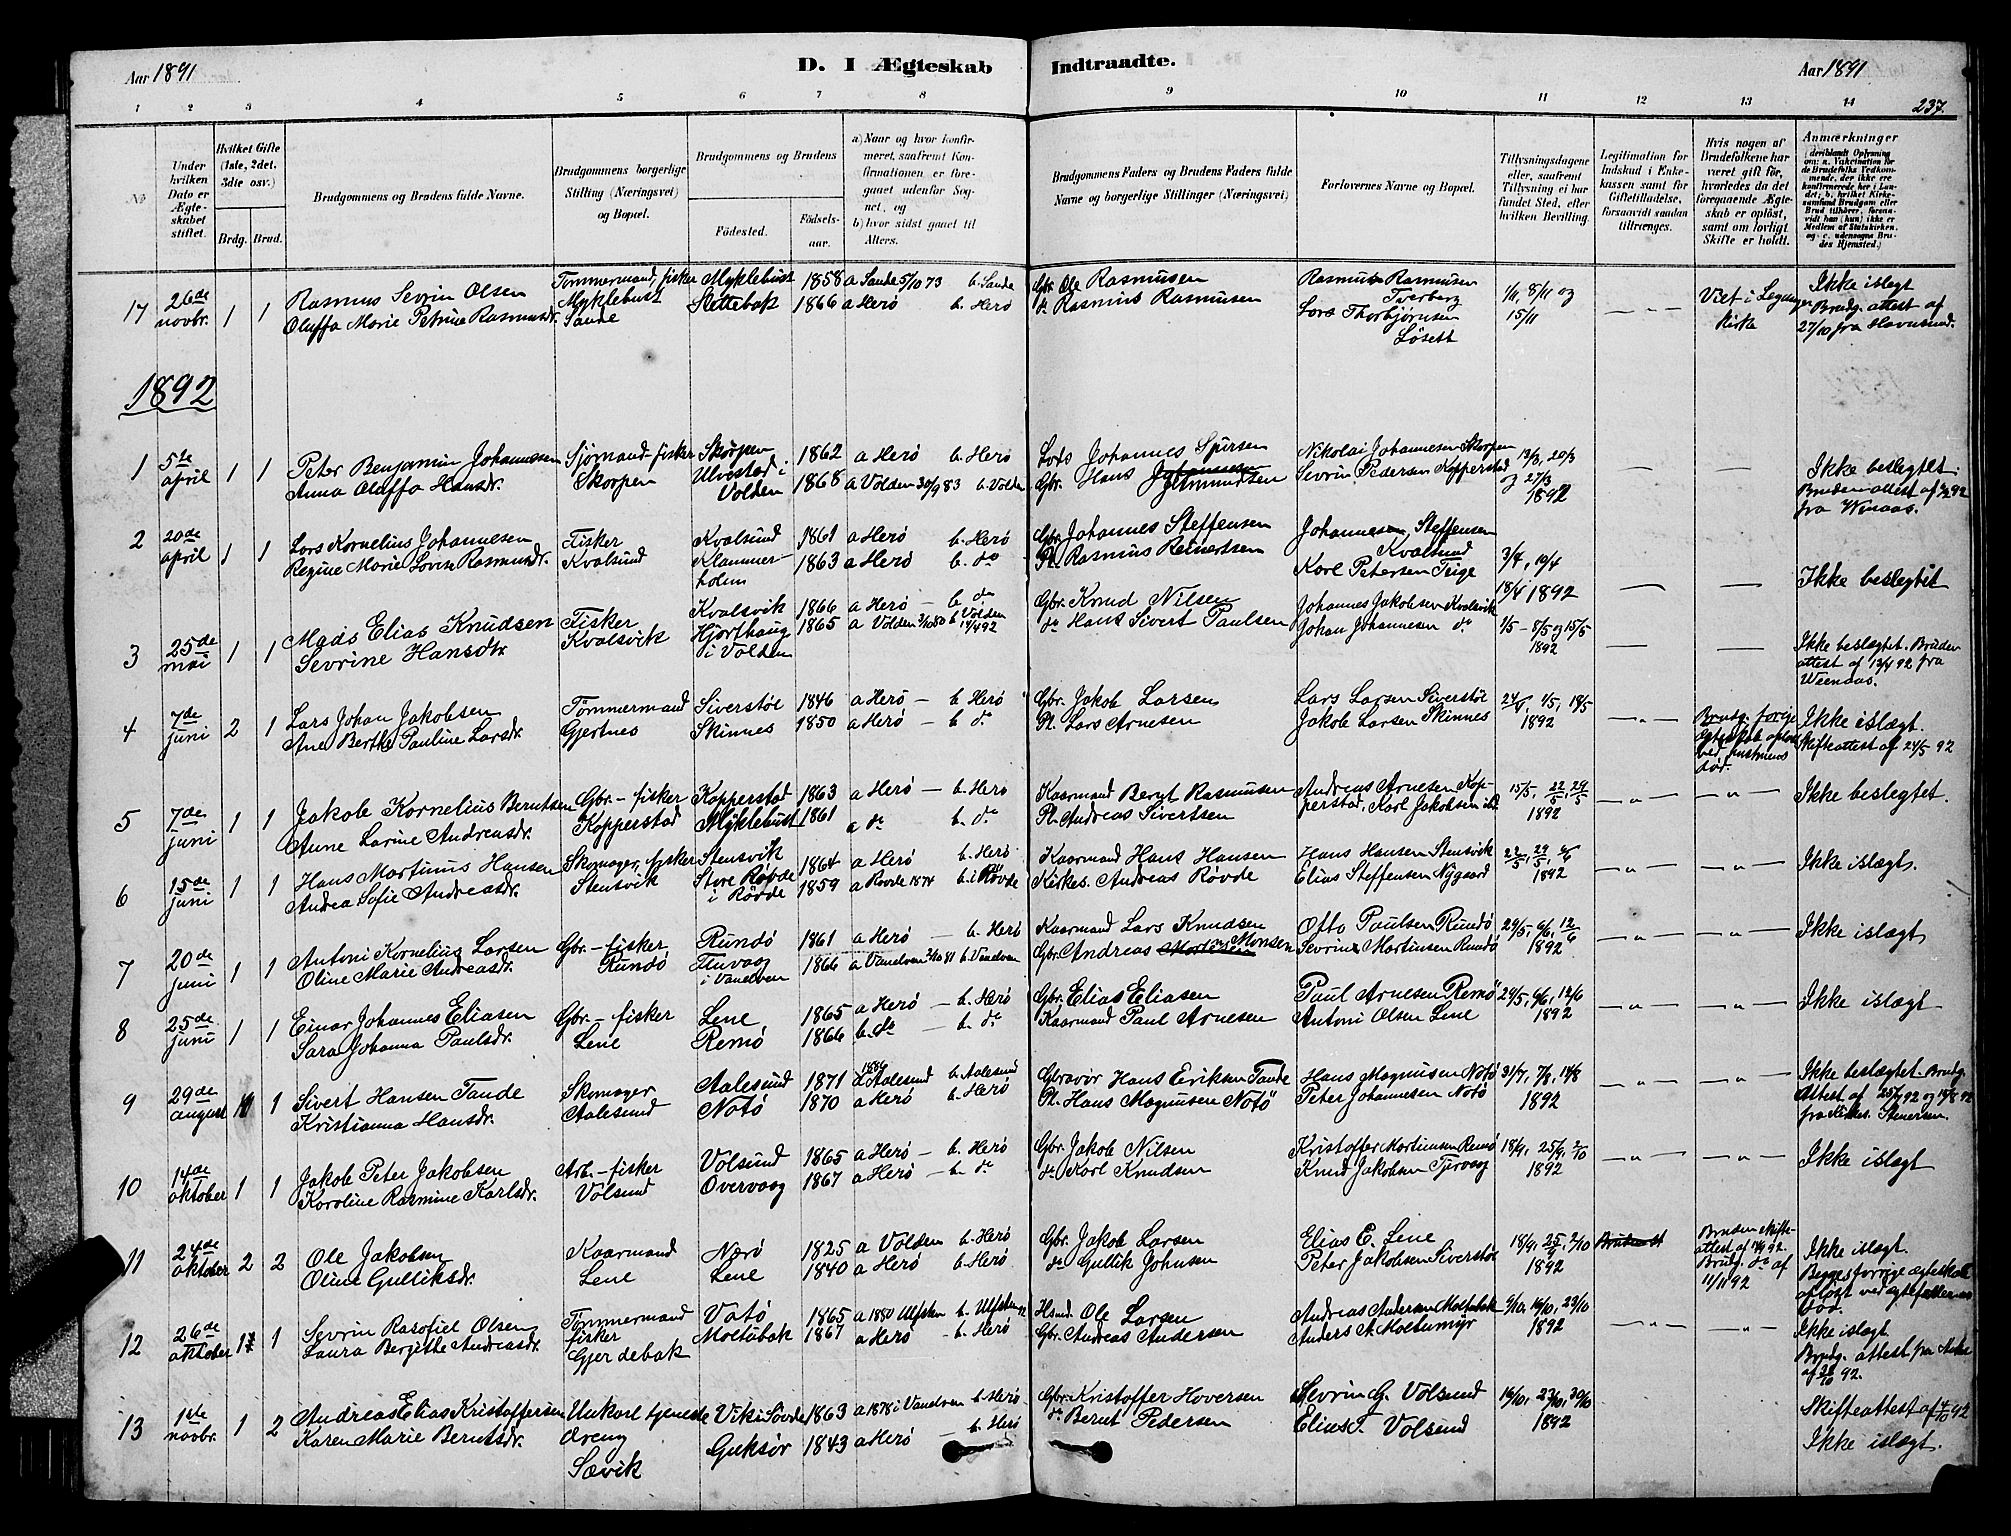 Aar 1891
D. I Ægteskab
Indtraadte.
Aar 1891
237.
1 2 3 4 5 6 7 8 9 10 11 12 13 14
No
Under hvilken Dato er Ægteskabet stiftet.
Hvilket Gifte (1ste, 2det, 3die osv.)
Brdg. Brud.
Brudgommens og Brudens fulde Navne.
Brudgommens borgerlige Stilling (Næringsvei) og Bopæl.
Brudgommens og Brudens
Fødested.
Fødselsaar.
a) Naar og hvor konfirmeret, saafremt Konfirmationen er foregaaet udenfor Sognet, og
b) hvor sidst gaaet til Alters.
Brudgommens Faders og Brudens Faders fulde Navne og borgerlige Stillinger (Næringsvei)
Forlovernes Navne og Bopæl.
Tillysningsdagene eller, saafremt Tillysning ei har fundet Sted, efter hvilken Bevilling.
Legitimation for Indskud i Enkekassen samt for Giftetilladelse, forsaavidt saadan tiltrænges.
Hvis nogen af Brudefolkene har været gift før, hvorledes da det foregaaende Ægteskab er opløst, samt om lovligt Skifte er holdt.
Anmærkninger
17 26de novbr. 1 1
Rasmus Sevrin Olsen
Oluffa Marie Petrine Rasmusdr.
Tømmermand, fisker
Myklebust
Sande
Myklebust 1858 a Sande 5/10 73 b. Sande
Slettebak 1866 a Herø b. Herø
Gbr. Ole Rasmusen
do Rasmus Rasmusen
Rasmus Rasmusen
Tverberg
Lars Thorbjørnsen
Løsett
1/11, 8/11 og
15/11
Viet i Leganger
Kirke
Ikke islegt
Brudg. attest af
27/10 fra Havnsund.
1892
1 5te april 1 1
Peter Benjamin Johannesen
Anna Olaffa Hansdr.
Sjømand-fisker
Skorpen
Skorpen 1862 a Herø b. Herø
Ulvestad i
Volden 1868 a Volden 30/9 83 b. Volden
Lods Johannes Sjursen
Gbr. Hans Johannesen Gjetmundsen
Nikolai Johannesen Skorpen
Sevrin Pedersen Kopperstad
13/3, 20/3
og 27/3
1892
Ikke beslegtet.
Brudens attest af 4/2 92
fra Wenaas.
2 20de april 1 1
Lars Kornelius Johannesen
Regine Marie Lovise Rasmusdr.
Fisker
Kvalsund
Kvalsund 1861 a Herø b. Herø
Klammerholm 1863 a Herø b. do
Gbr. Johannes Steffensen
Pl. Rasmus Reinertsen
Johannesen Steffensen
Kvalsund
Karl Petersen Teige
3/4, 10/4
18/4 1892
Ikke beslegtet
3 25de mai 1 1
Mads Elias Knudsen
Sevrine Hansdtr.
Fisker
Kvalsvik
Kvalsvik 1866 a Herø – b. do
Hjorthaug
i Volden 1865 a Volden 3/10 80 b Volden
17/4 92
Gbr. Knud Nilsen
do Hans Sivert Paulsen
Johannes Jakobsen Kvalsvik
Johan Johannesen do
1/5 - 8/5 og 15/5
1892
Ikke beslegtet. Bruden
attest af 13/4 92 fra
Weenaas.
4 7de juni 2 1
Lars Johan Jakobsen
Ane Berthe Pauline Larsdr.
Tømmermand
Gjertnes
Siverstøl 1846 a Herø – b. Herø
Skinnes 1850 a Herø – b. do
Gbr. Jakob Larsen
Pl. Lars Arnesen
Lars Larsen Siverstøl
Jakob Larsen Skinnes
24/4, 1/5, 15/5
1892
Brudg. forige
Egteskab opløst
ved hustruens
død.
Ikke islægt.
Skifteattest af 24/5 92
5 7de juni 1 1
Jakob Kornelius Berntsen
Anne Larine Andreasdr.
Gbr. – fisker
Kopperstad
Kopperstad 1863 a Herø – b. Herø
Myklebust 1861 a do b. do
Kaarmand Bernt Rasmusen
Pl. Andreas Sivertsen
Andreas Arnesen Kopperstad, Karl Jakobsen ibd.
15/5, 22/5, 29/5
1892
Ikke beslegtet.
6 15de juni 1 1
Hans Martinus Hansen
Andrea Sofie Andreasdr.
Skomager, fisker
Stensvik
Stensvik 1864 a Herø b. Herø
Store Røvde
i Røvde 1859 a Rovde 1874 b. i Røvde
Kaarmand Hans Hansen
Kirkes. Andreas Røvde
Hans Hansen Stensvik
Elias Steffensen Nygaard
22/5, 29/5, 6/6
1892
Ikke islægt.
7 20de juni 1 1
Antoni Kornelius Larsen
Oline Marie Andreasdr.
Gbr. – fisker
Rundø
Rundø 1861 a Herø – b. Herø
i Vanelven 1866 a Vanelven 2/10 81 b. Vanelven
Kaarmand Lars Knudsen
Gbr. Andreas Monsen
Otto Paulsen Rundø
Sevrin Martinsen Rundø
29/5, 6/6, 12/6
1892
Ikke islegt
8 25de juni 1 1
Einar Johannes Eliasen
Sara Johanna Paulsdr.
Gbr. – fisker
Lene
Lene 1865 a Herø – b. Herø
Remø 1866 b. do – b. do
Gbr. Elias Eliasen
Kaarmand Paul Arnesen
Paul Arnesen Remø
Antoni Olsen Lene
29/5, 6/6, 12/6
1892
Ikke islegt
9 29de august 1 1
Sivert Hansen Tande
Kristianna Hansdr.
Skomager
Aalesund
Aalesund 1871 Aalesund b. Aalesund
Notø 1870 a Herø b. Herø
Hans Eriksen Tande
Pl. Hans Magnusen Notø
Hans Magnusen Notø
Peter Johannesen Notø
31/7, 7/8, 14/8
1892
Ikke beslegtet. Brudg.
Attest af 25/7 92 og 14/8 92
fra Kirkes. Stenersen.
10 14de oktober 1 1
Jakob Peter Jakobsen
Karoline Rasmine Karlsdr.
Arb. – fisker
Volsund
Volsund 1865 a Herø – b. Herø
Overvaag 1867 a Herø – b. do
Gbr. Jakob Nilsen
do Karl Knudsen
Kristoffer Martinsen Remø
Knud Jakobsen Tjervaag
18/9, 25/9, 2/10
1892
Ikke islegt
11 24de oktober 2 2
Ole Jakobsen
Oline Gulliksdr.
Kaarmand
Lene
Nerø 1825 a Volden b. Herø
Lene 1840 a Herø b. Herø
Gbr. Jakob Larsen
do Gullik Johnsen
Elias E. Lene
Peter Jakobsen Siverstøl
18/9, 25/9, 2/10
1892
Bruden Skifteattest af 14/9 92.
Brudg. do af
11/11 92
Ikke islegt.
Begges forrige ægteskab
opløst ved egtefællernes
død.
12 26de oktober 1 1
Sevrin Rasofiel Olsen
Laura Bergithe Andreasdr.
Tømmermand
fisker
Gjerdebak
Vatø 1865 a 1880 Ulfsten b. Ulfsten
Moltubak 1867 a Herø – b. Herø
Hsmd. Ole Larsen
Gbr. Andreas Andersen
Andreas Andersen Moltubak
Anders A. Moltumyr
9/10, 16/10, 23/10
1892
Ikke islegt
Brudg. attest fra
92.
13 1ste novbr. 1 2
Andreas Elias Kristoffersen
Karen Marie Berntsdr.
Unkarl tjeneste
dreng
Sævik
Vik i Søvde 1863 a 1878 i Vanelven b. Herø
Gurksør 1843 a Herø – b. Herø
Gbr. Kristoffer Hoversen
do Bernt Pedersen
Sevrin G. Volsund
Elias T. Volsund
16/10, 23/10, 30/10
1892
Skifteattest af 4/10 92
Ikke islegt.